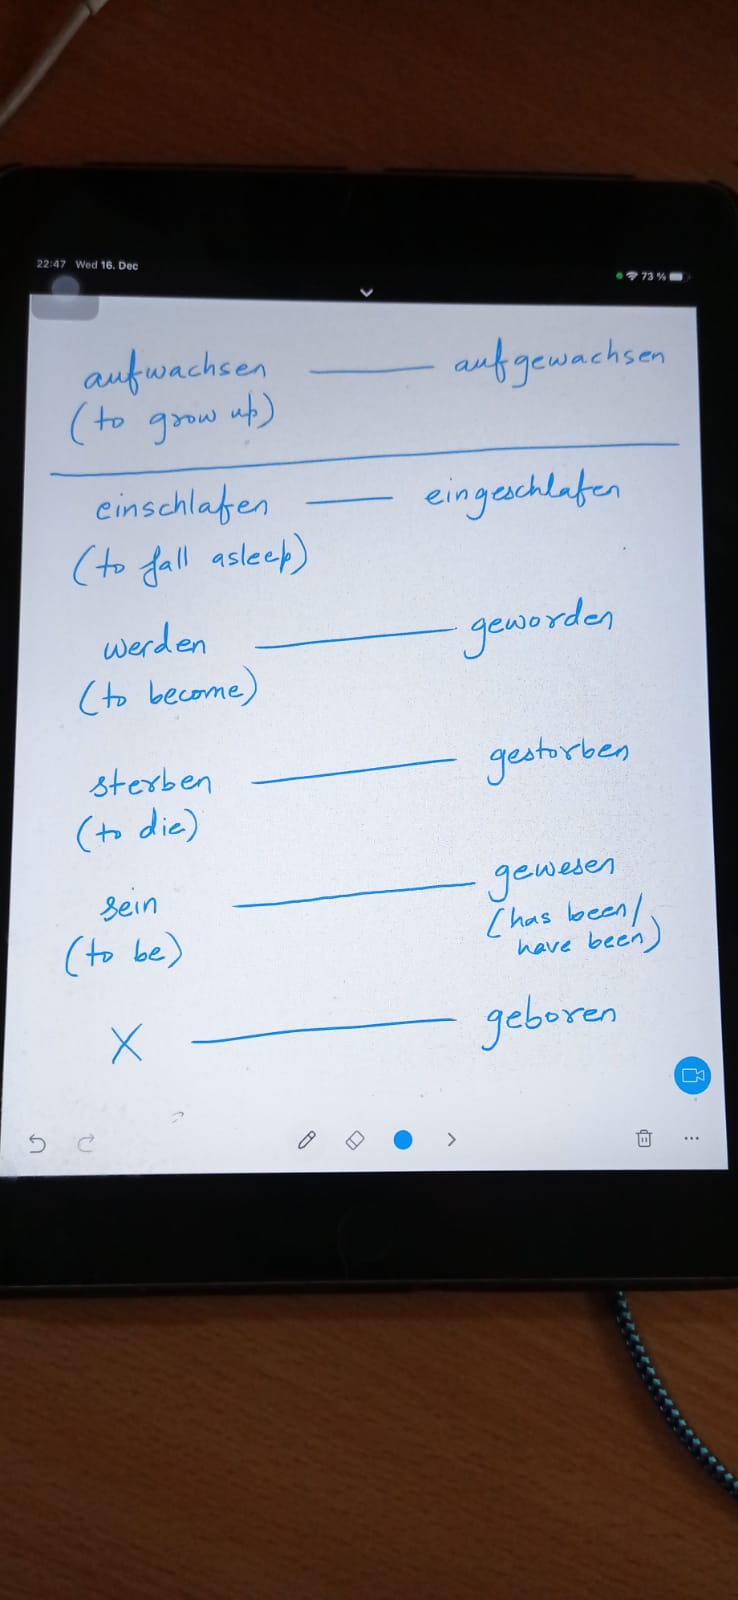 22:47 Wed 16. Dec
73 %
aufwachsen —— aufgewachsen
(to grow up)
einschlafen —— eingeschlafen
(to fall asleep)
werden —— geworden
(to become)
sterben —— gestorben
(to die)
sein —— gewesen
(to be) (has been/
have been)
X —— geboren